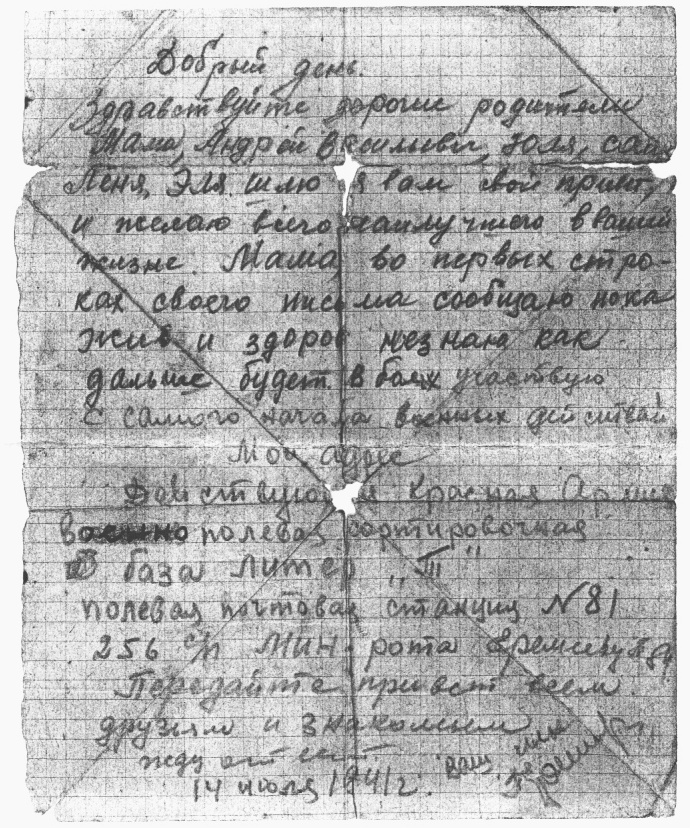 Добрый день.
Здравствуйте дорогие родители
Мама, Андрей Васильевич, Юля,
Леня, Эля. шлю я вам свой привет,
и желаю всего наилучшего в вашей
жизне. Мама, во первых стро-
ках своего письма сообщаю пока
жив и здоров незнаю как
дальше будет. в боях участвую
с самого начала военных действий
Мой адрес
Действующая Красная Армия
военно полевая сортировочная
база Литер „III“
полевая почтовая станция N 81
256 с/п МИН. рота
Передайте привет всем
друзьям и знакомым
жду ответ
14 июля 1941 г.
ваш